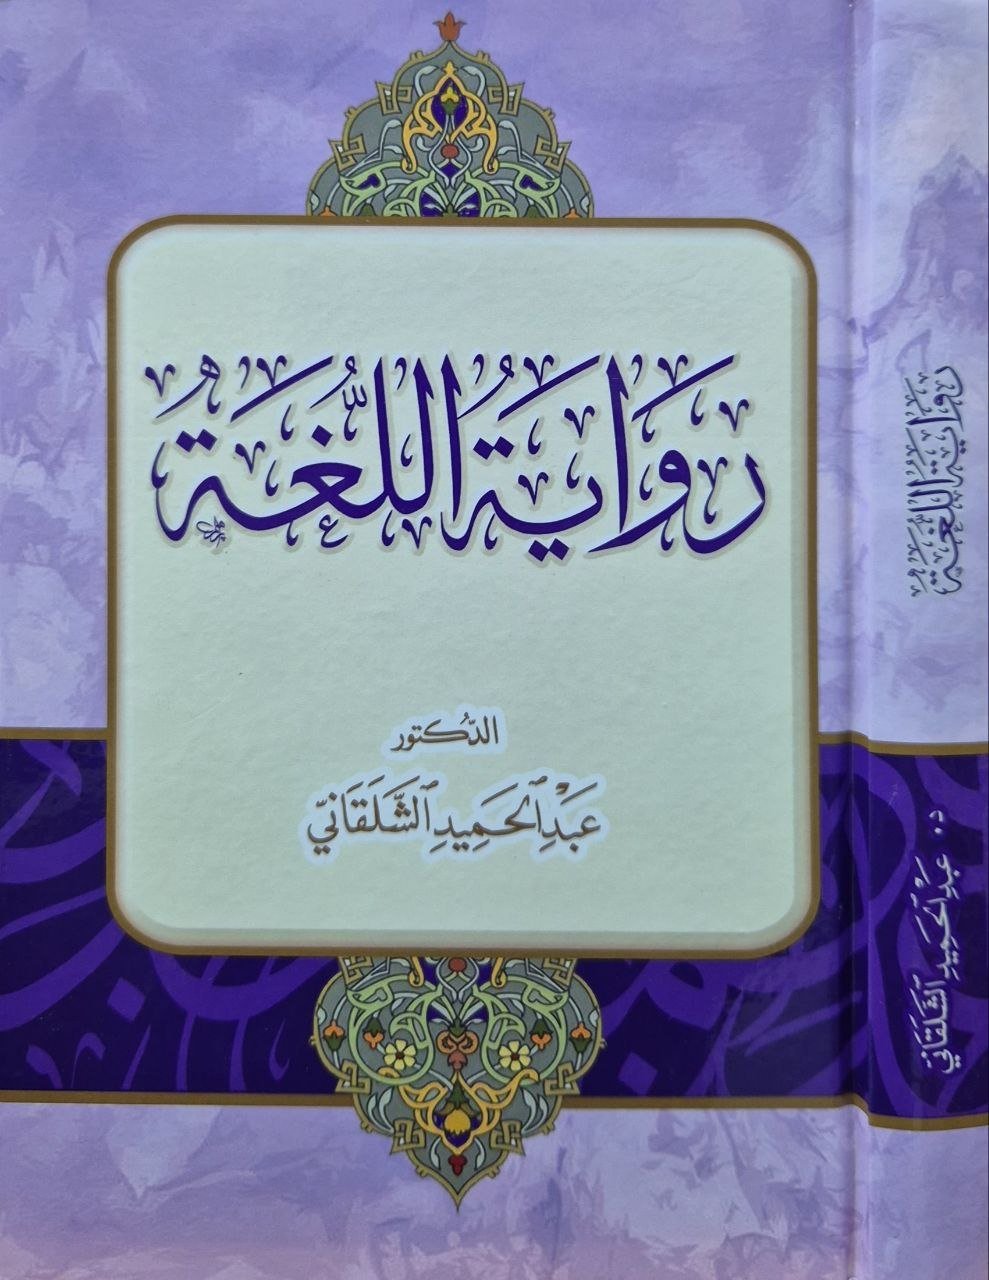 رِوَايَةُ اللُّغَةِ
الدُّكتور
عَبْدُ الْحَمِيدِ الشَّلَقَانِيّ
رواية اللغة
د. عَبْدُ الْحَمِيدِ الشَّلَقَانِيّ